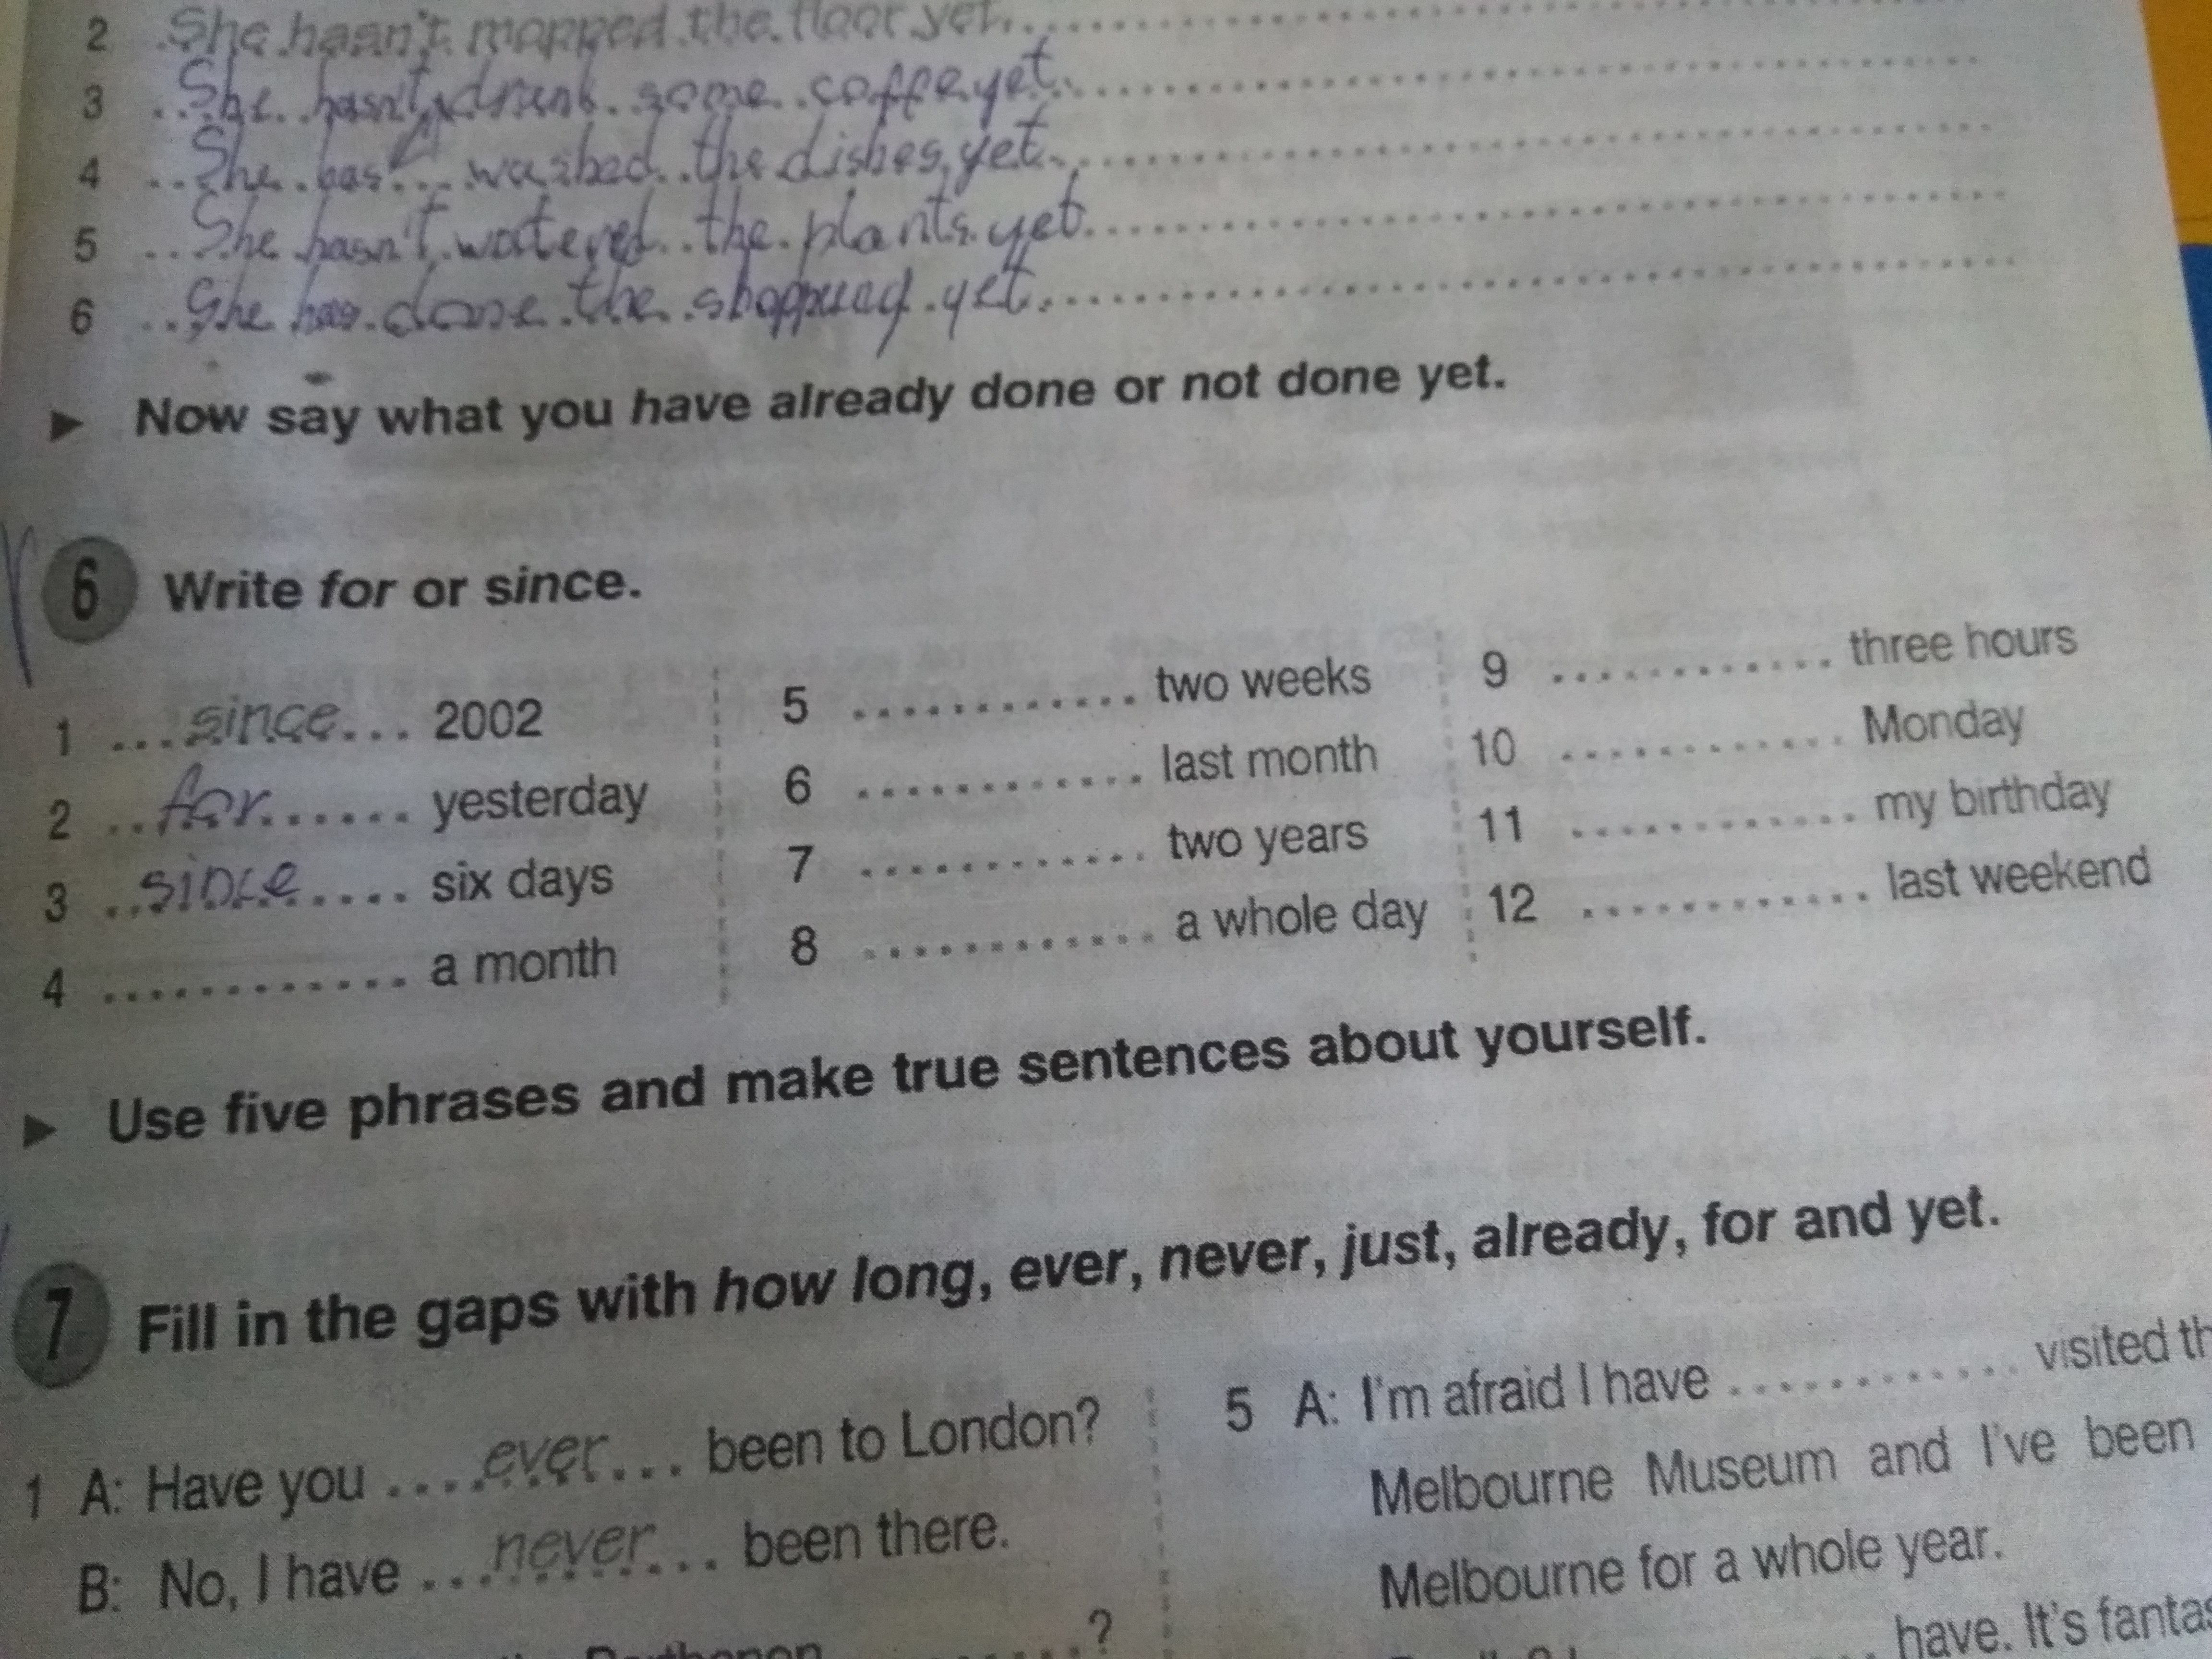 2 She hasn't mopped the floor yet.
3 She hasn't drunk some coffe yet.
4 She has washed the dishes yet.
5 She hasn't watered the plants yet.
6 She has done the shopping yet.
► Now say what you have already done or not done yet.
6 Write for or since.
1 since 2002
2 for yesterday
3 since six days
4 ............ a month
5 ............ two weeks
6 ............ last month
7 ............ two years
8 ............ a whole day
9 ............ three hours
10 ............ Monday
11 ............ my birthday
12 ............ last weekend
► Use five phrases and make true sentences about yourself.
7 Fill in the gaps with how long, ever, never, just, already, for and yet.
1 A: Have you ....ever... been to London?
B: No, I have ...never... been there.
?
5 A: I'm afraid I have ............ visited th
Melbourne Museum and I've been
Melbourne for a whole year.
have. It's fantas